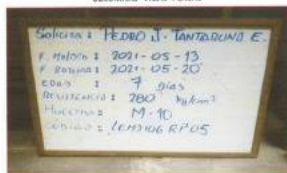 Solicita : PEDRO J. TANTARUNA E.
F. MOLDEO : 2021-05-13
F. ROTURA : 2021-05-20
EDAD : 7 días
RESISTENCIA : 280 kg/cm²
MUESTRA : M-10
CÓDIGO :